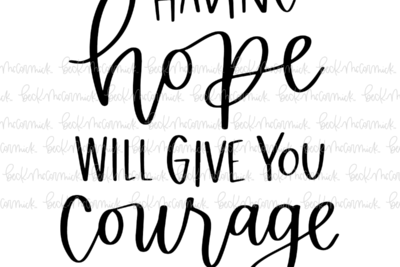 HAVING
hope
WILL GIVE YOU
courage